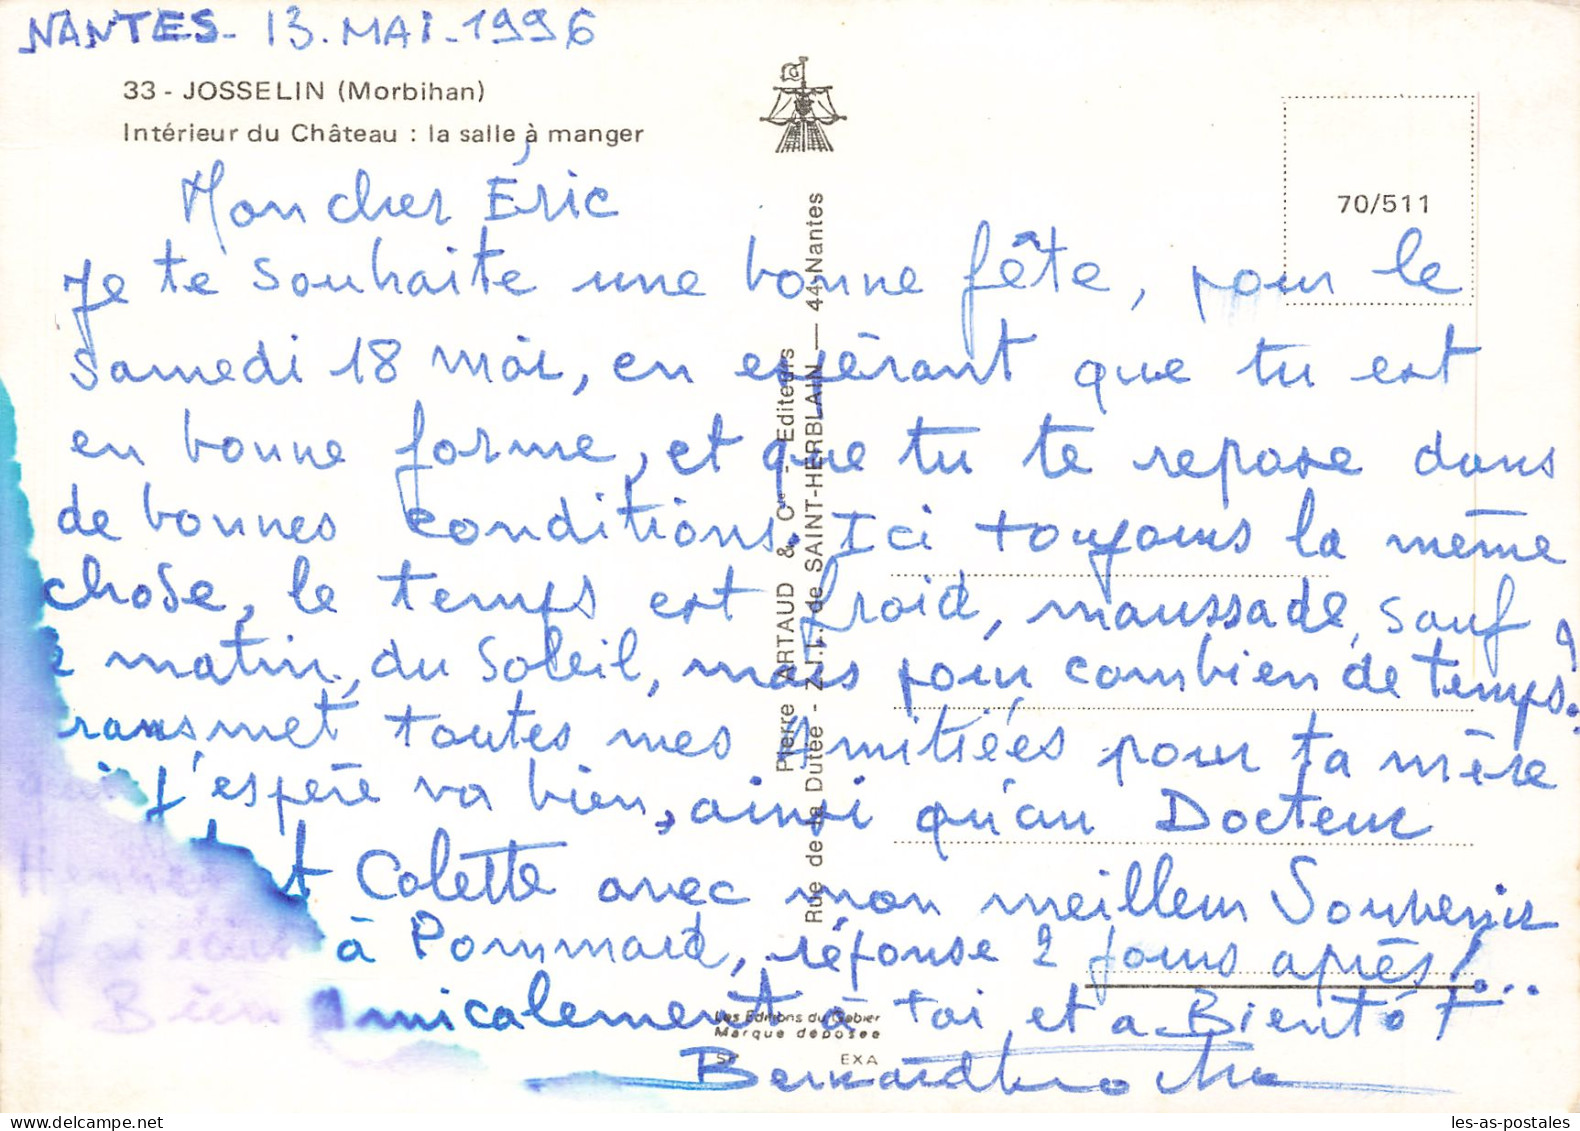 NANTES - 13 - MAI - 1996
33 - JOSSELIN (Morbihan)
Intérieur du Château : la salle à manger
70/511
Mon cher Éric
Je te souhaite une bonne fête, pour le
Samedi 18 mai, en espérant que tu est
en bonne forme, et que tu te repose dans
de bonnes conditions. Ici toujours la même
chose, le temps est froid, maussade, sauf
matin, du Soleil, mais pour combien de temps ?
ransmet toutes mes Amitiées pour ta mère
qui j'espére va bien, ainsi qu'au Docteur
et Colette avec mon meilleur Souvenir
J'ai écris à Pommard, réponse 2 jours après !...
Bien Amicalement à toi, et a Bientôt
Bernard
Pierre ARTAUD & Cie - Editeurs
Rue de la Dutée - Z.I.L. de SAINT-HERBLAIN — 44-Nantes
Les Editions du Gabier
Marque déposée
EXA
les-as-postales